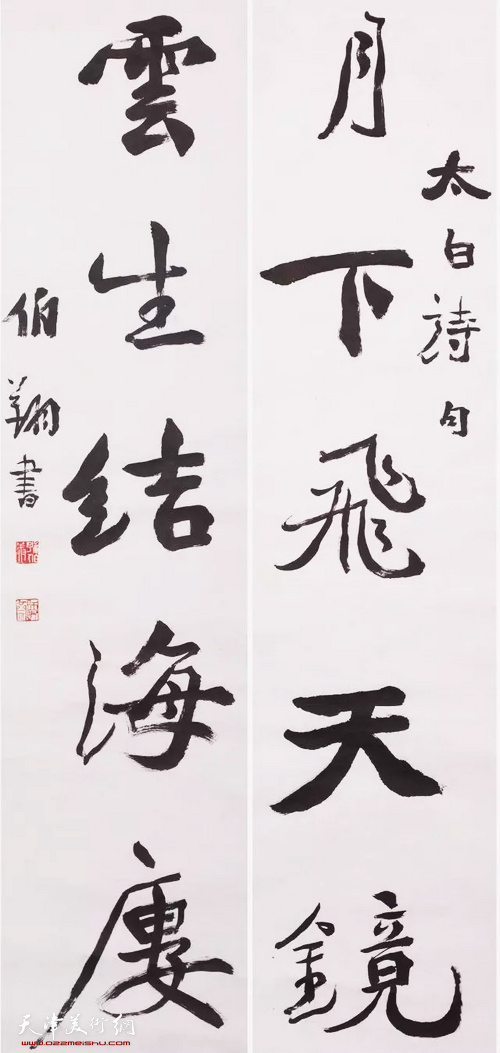 太白詩句
月下飛天鏡
雲生結海廔
伯翔書
天津美術網
www.022meishu.com